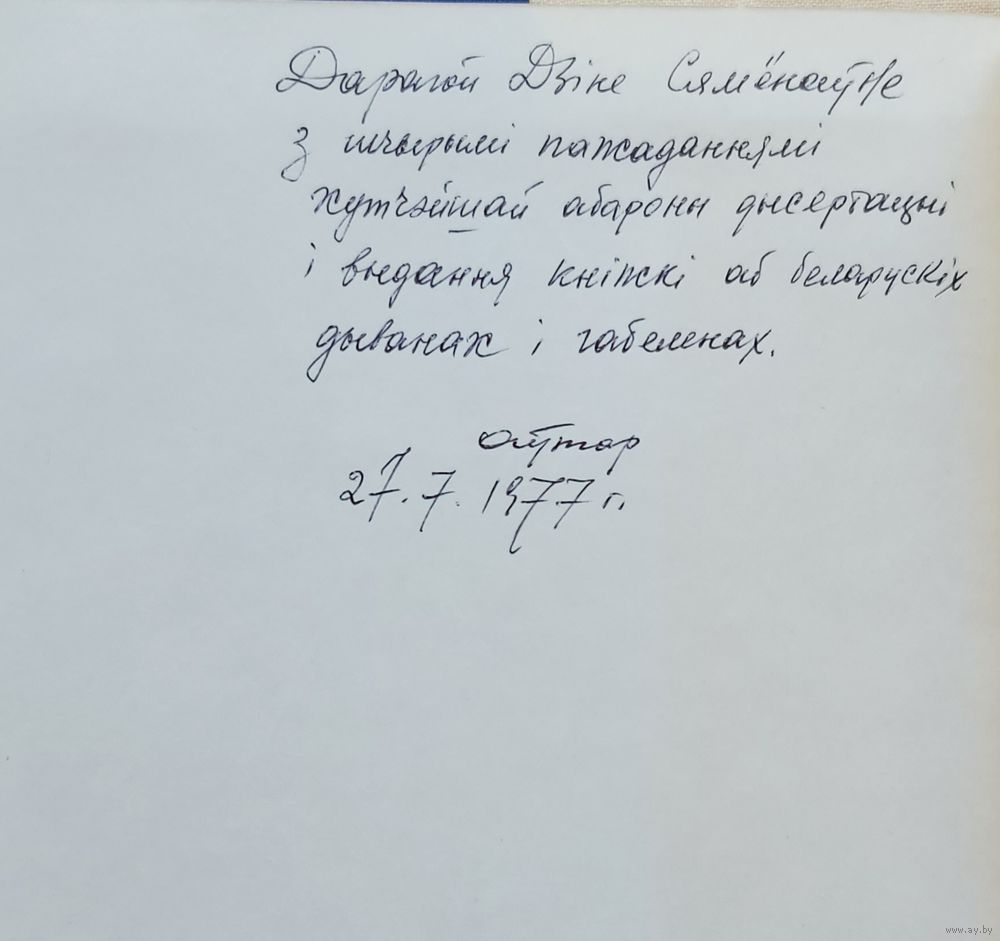 Дарагой Дзіне Сямёнаўне
з шчырымі пажаданнямі
хутчэйшай абароны дысертацыі
і выдання кніжкі аб беларускіх
дыванах і габеленах.
аўтар
27.7.1977 г.
www.ay.by